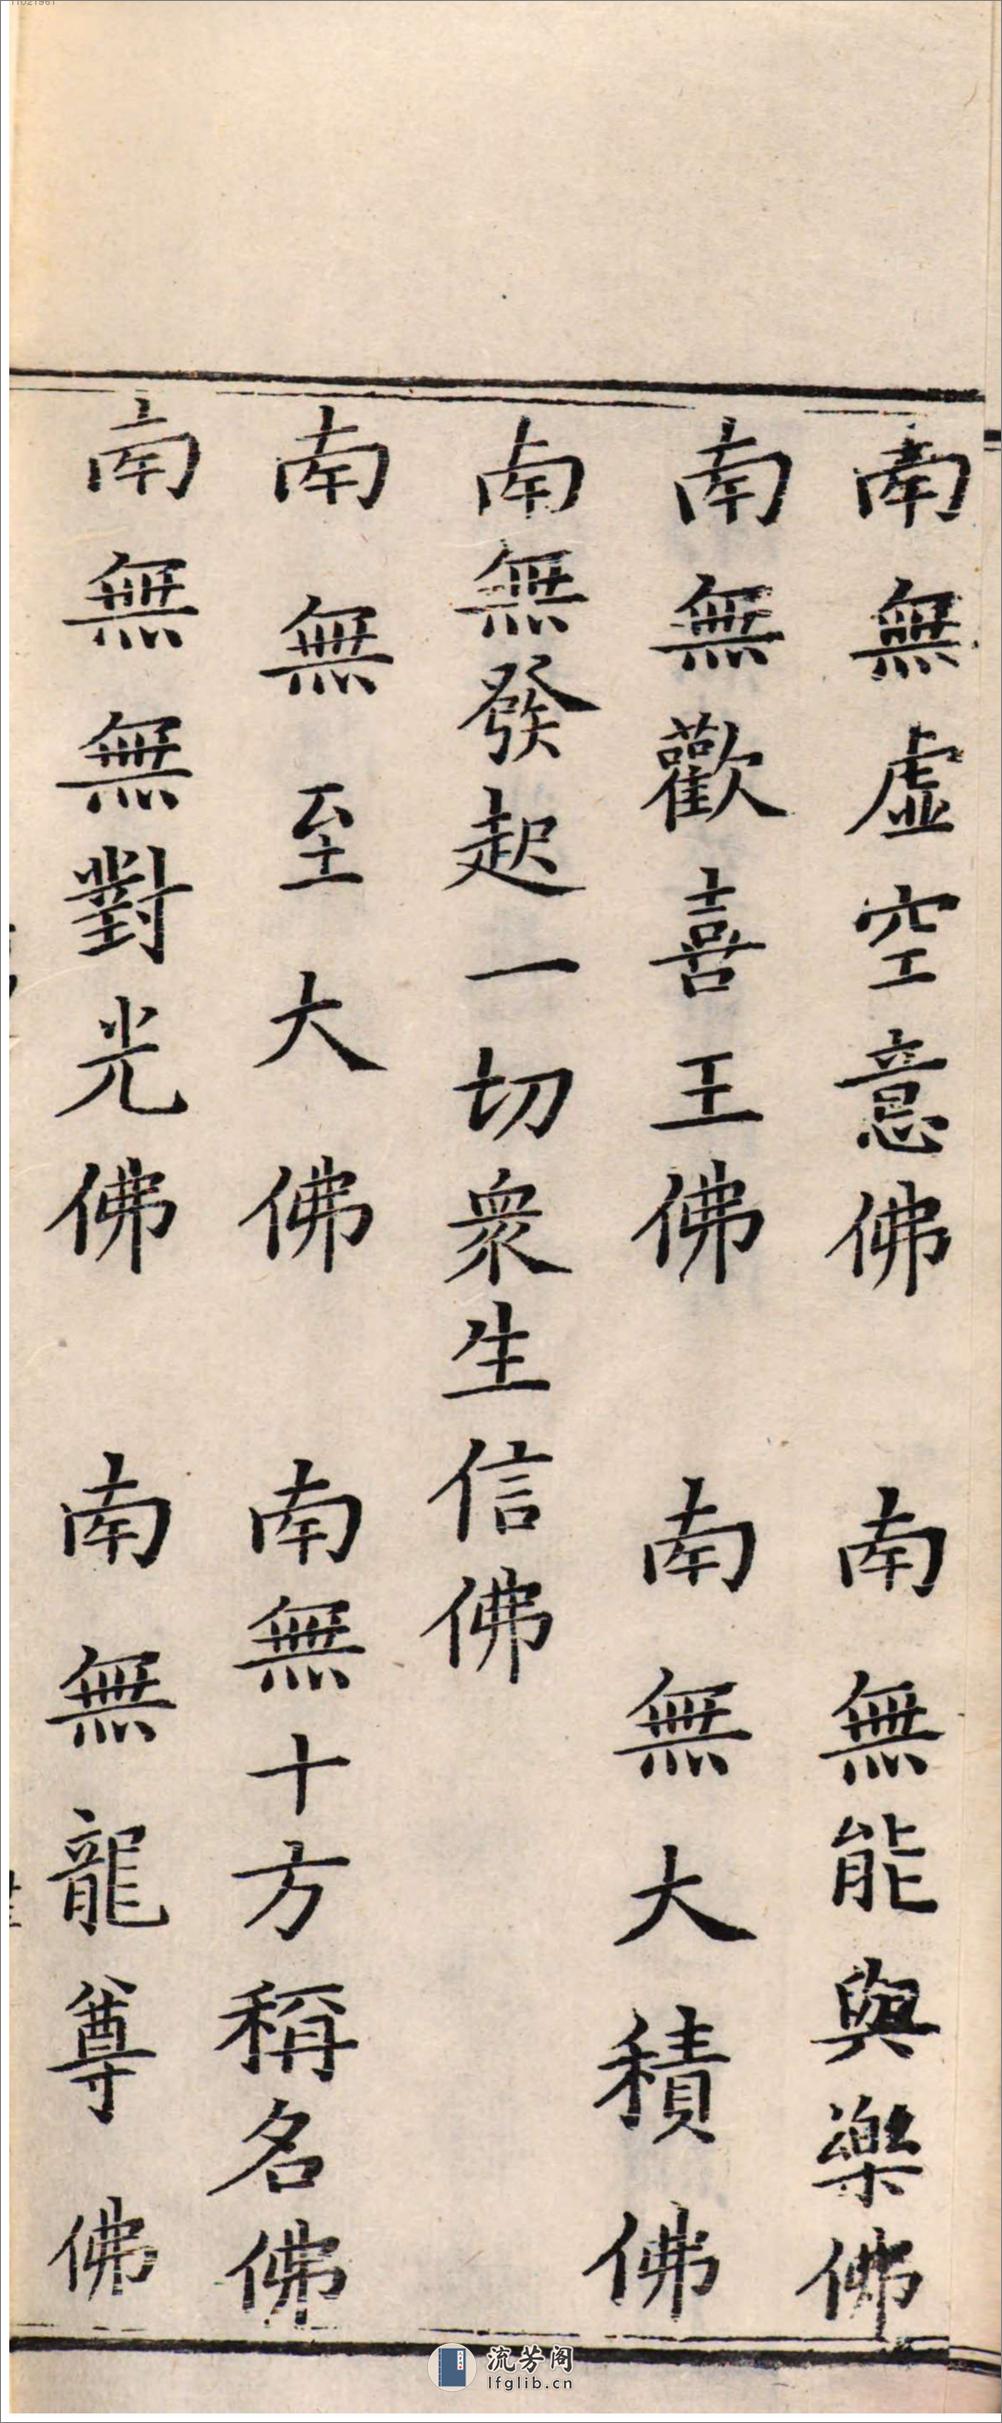 南無虛空意佛　南無能與樂佛
南無歡喜王佛　南無大積佛
南無發起一切衆生信佛
南無至大佛　南無十方稱名佛
南無無對光佛　南無龍尊佛
流芳阁
lfglib.cn